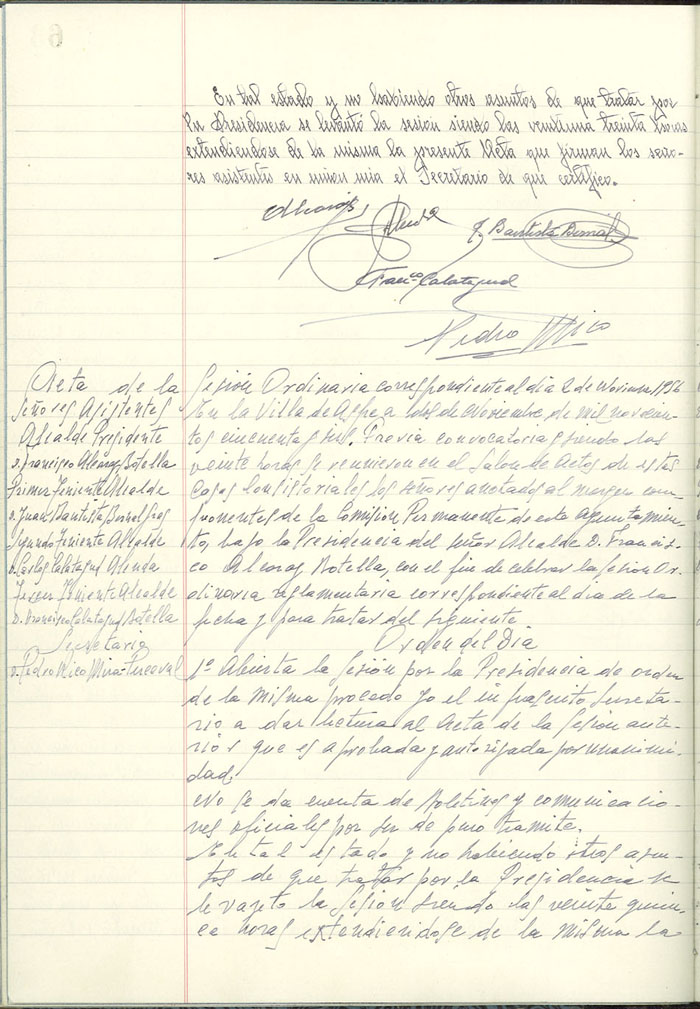 En tal estado y no habiendo otros asuntos de que tratar por
la Presidencia se levantó la sesión siendo las veintiuna treinta horas
extendiendose de la misma la presente Acta que firman los seño-
res asistentes en union mia el Secretario de que certifico.
J. Bautista Bernal
Franco Calatayud
Pedro Mico
Acta de la
Señores Asistentes
Alcalde Presidente
D. Francisco Alcaraz Botella
Primer Teniente Alcalde
D. Juan Bautista Bernal
Segundo Teniente Alcalde
D. Carlos Calatayud Alenda
Tercer Teniente Alcalde
D. Francisco Calatayud Botella
Secretario
D. Pedro Mico Mira-Perceval
Sesión Ordinaria correspondiente al día 2 de Noviemre 1956
En la Villa de Aspe a dos de Noviembre de mil novecien-
tos cincuenta y seis. Previa convocatoria y siendo las
veinte horas se reunieron en el Salon de Actos de estas
Casas Consistoriales los señores anotados al margen com-
ponentes de la Comision Permanente de este Ayuntamien-
to, bajo la Presidencia del señor Alcalde D. Francis-
co Alcaraz Botella, con el fin de celebrar la sesión Or-
dinaria reglamentaria correspondiente al dia de la
fecha y para tratar del siguiente
Orden del Día
1º Abierta la sesión por la Presidencia de orden
de la misma procedo yo el infrascrito Secreta-
rio a dar lectura al Acta de la sesion ante-
rior que es aprobada y autorizada por unanimi-
dad.
No se da cuenta de Boletines y comunicacio-
nes oficiales por ser de puro tramite.
En tal estado y no habiendo otros asun-
tos de que tratar por la Presidencia se
levanto la sesión siendo las veinte quin-
ce horas extendiendose de la misma la